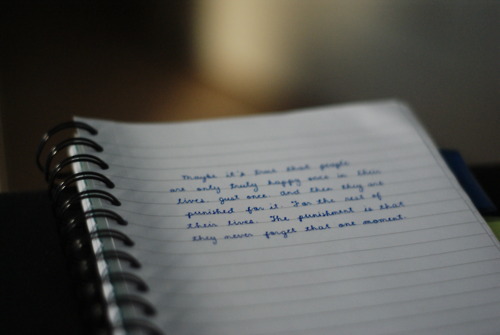 Maybe it's true that people
are only truly happy once in their
lives. Just once. And then they are
punished for it. For the rest of
their lives. The punishment is that
they never forget that one moment.